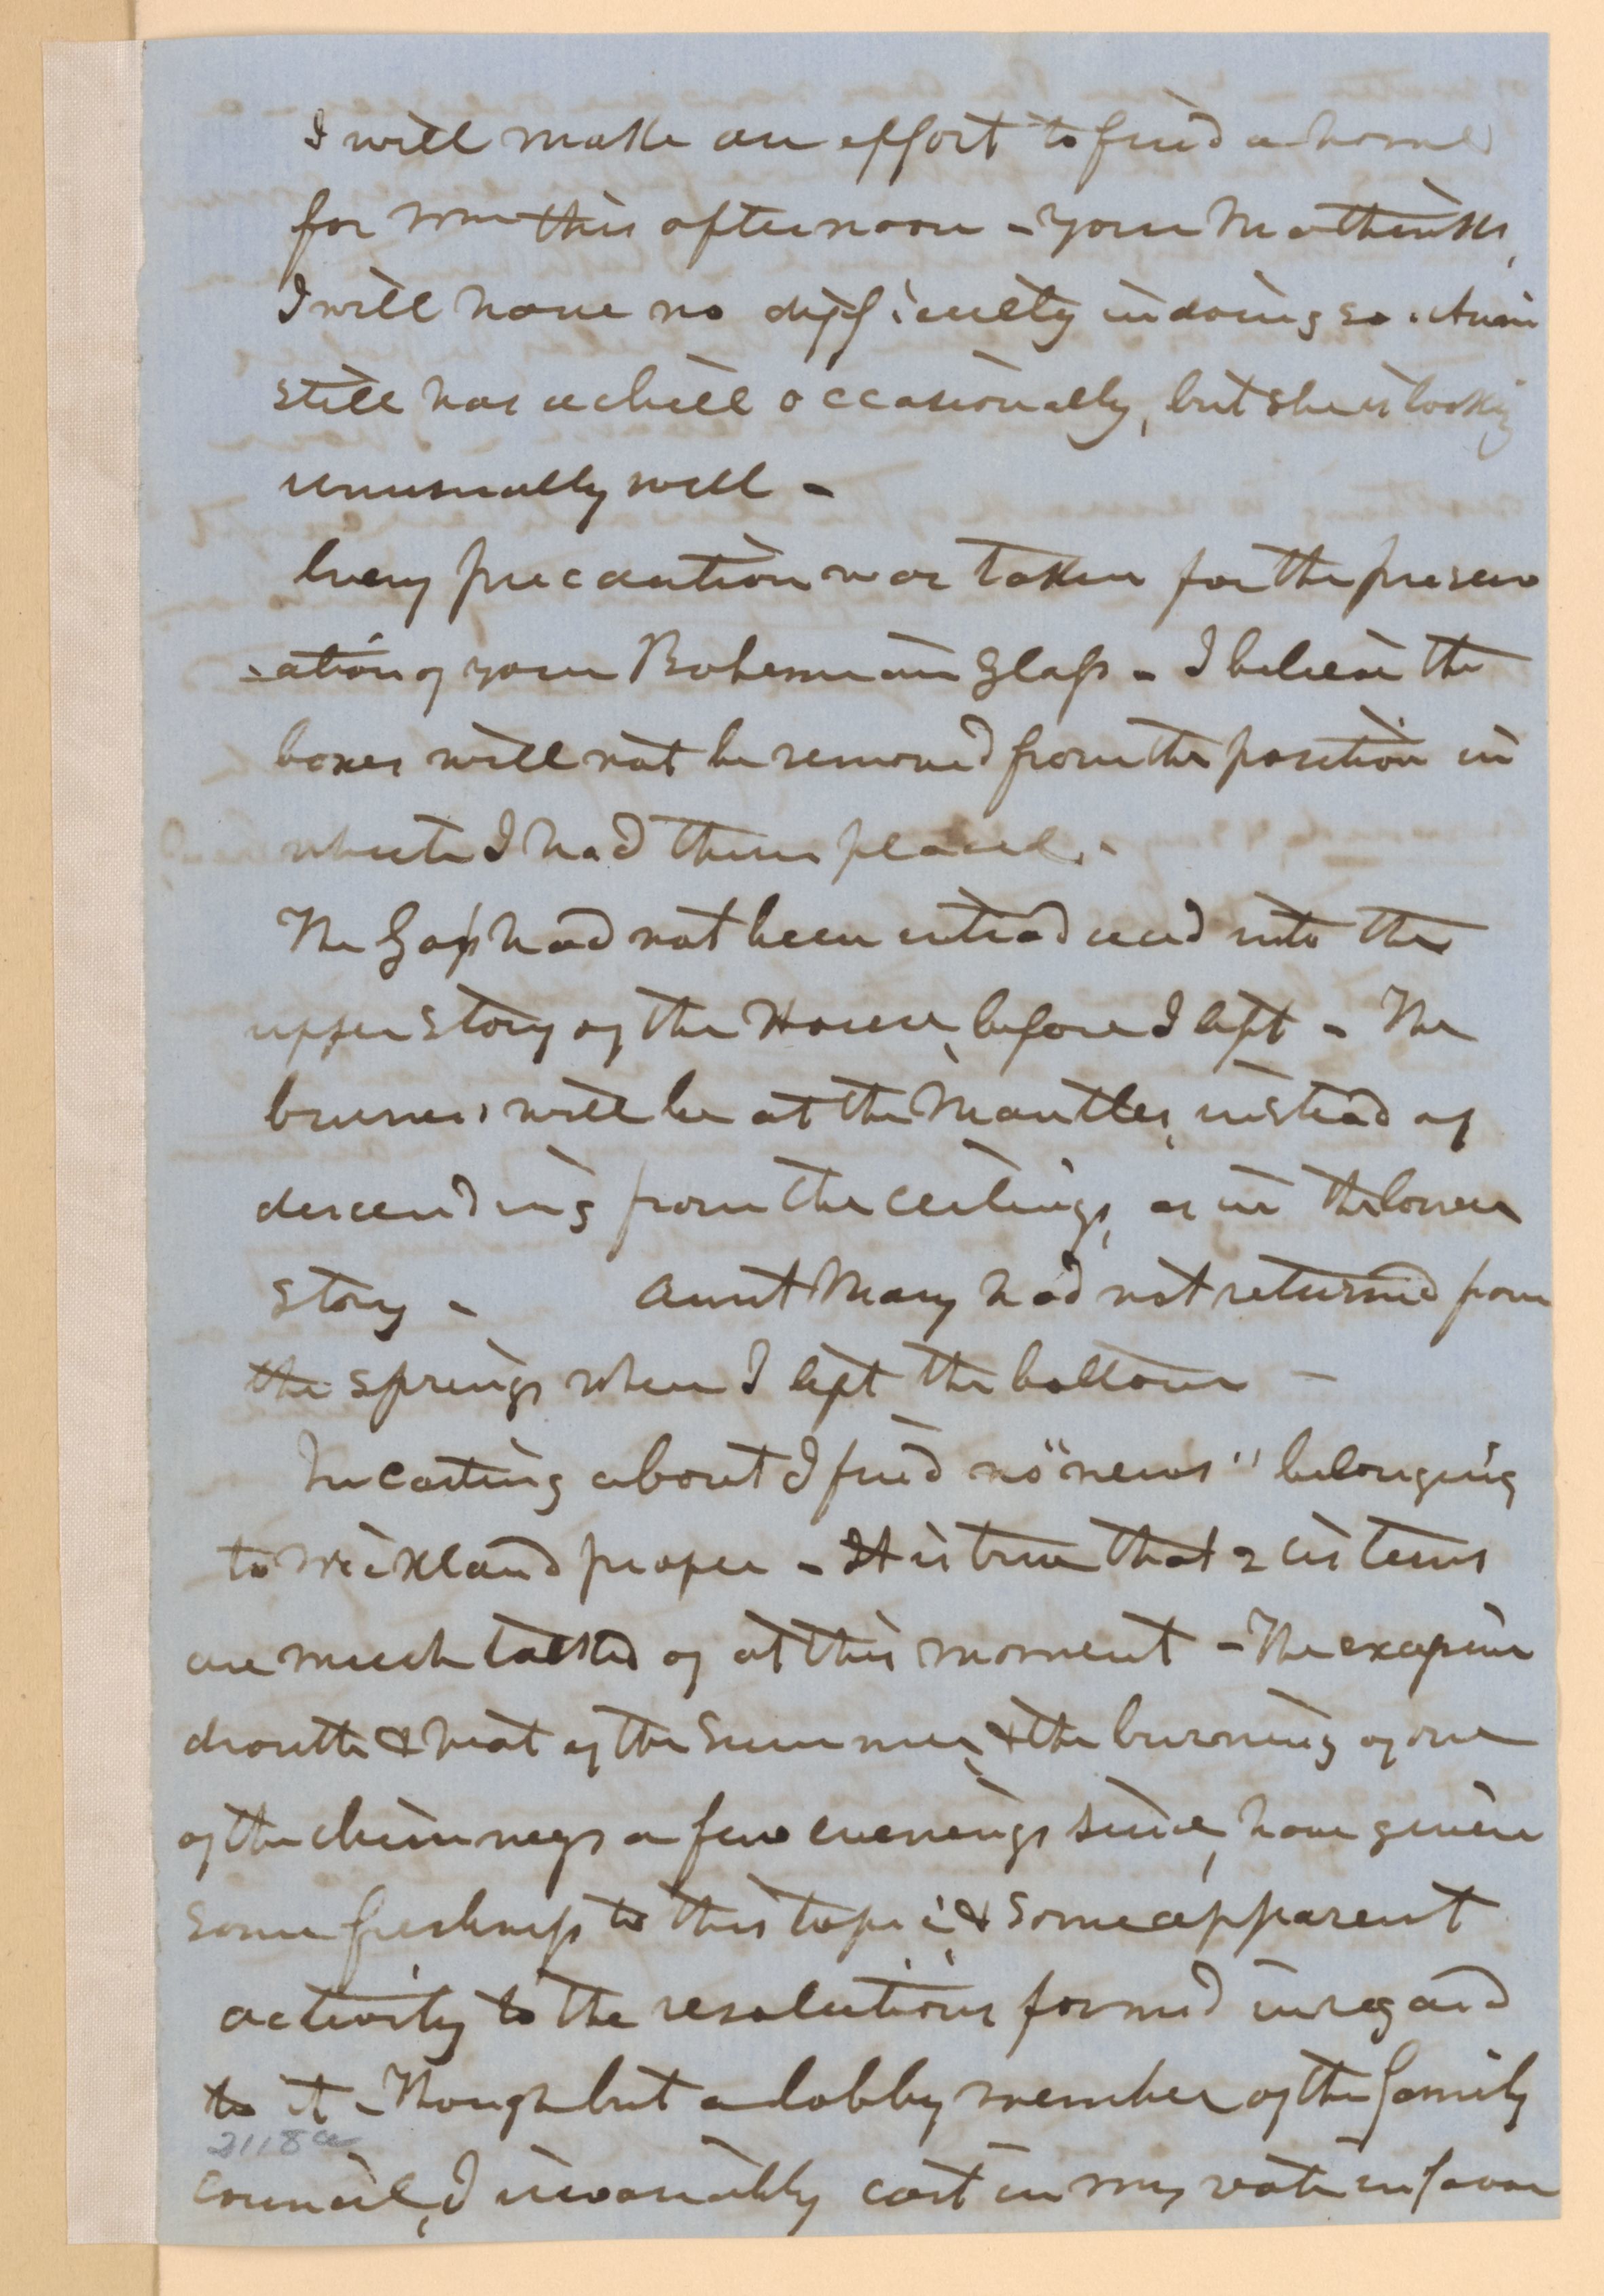 I will make an effort to find a home
for      this afternoon - your Ma thinks,
I will have no difficulty in doing so. Ann
still has a chill occasionally, but she is looking
unusually well -
Every precaution was taken for the preserv
-ation of your Bohemian Glass - I believe the
boxes will not be removed from the position in
which I had them placed. -
The Gas had not been introduced into the
upper story of the House, before I left - The
burners will be at the Mantles, instead of
descending from the ceilings, as in the lower
story - Aunt Mary had not returned from
the springs when I left the bottom -
In casting about I find no "news" belonging
to Wickland proper - It is true that 2 cisterns
are much talked of at this moment - The excessive
drouth & heat of the Summer, & the burning of one
of the chimneys a few evenings since, have given
some freshness to this topic & some apparent
activity to the resolutions formed in regard
to it - Though but a lobby member of the family
2118a
Council, I invariably cast in my vote in favor